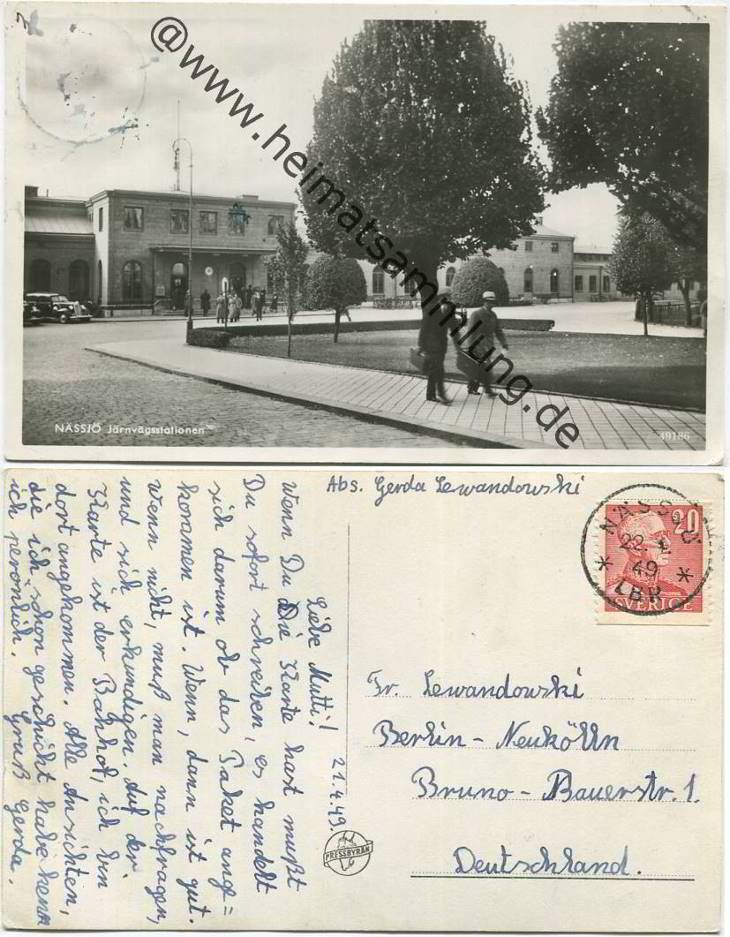 @www.heimatsammlung.de
NÄSSJÖ Järnvägsstationen
39186
Abs. Gerda Lewandowski
NÄSSJÖ
22. 4.
49
LBR
20
SVERIGE
21.4.49.
Liebe Mutti!
Wenn Du Die Karte hast mußt
Du sofort schreiben, es handelt
sich darum ob das Paket ange=
kommen ist. Wenn, dann ist gut.
Wenn nicht, muß man nachfragen,
und sich erkundigen. Auf der
Karte ist der Bahhof, ich bin
dort angekommen. Alle Ansichten,
die ich schon geschickt habe kenn
ich persönlich. Gruß Gerda.
PRESSBYRÅN
Fr. Lewandowski
Berlin - Neukölln
Bruno - Bauerstr. 1.
Deutschland.